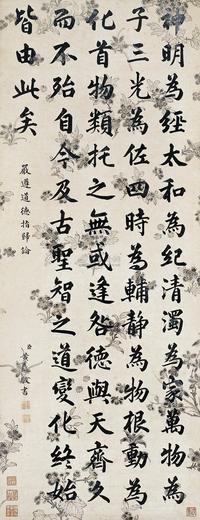 神明為經太和為紀清濁為家萬物為
子三光為佐四時為輔靜為物根動為
化首物類托之無或逢咎德與天齊久
而不殆自今及古聖智之道變化終始
皆由此矣
嚴遵道德指歸論
臣黃書